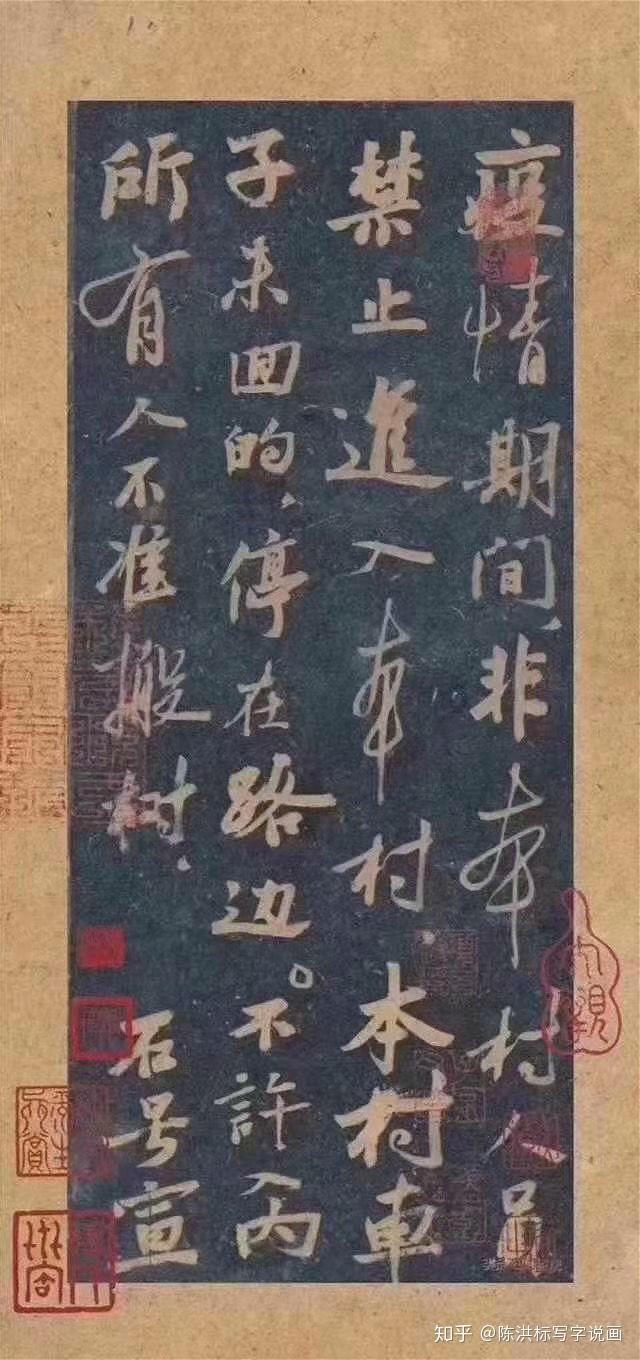 疫情期間,非本村人员
禁止進入本村.本村車
子未回的,停在路边。不許入内
所有人不准搬树.
石号宣
内觀
知乎 @陈洪标写字说画